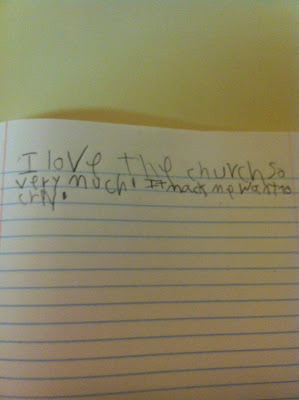 I love the church so
very much! It mack me want to
cry.